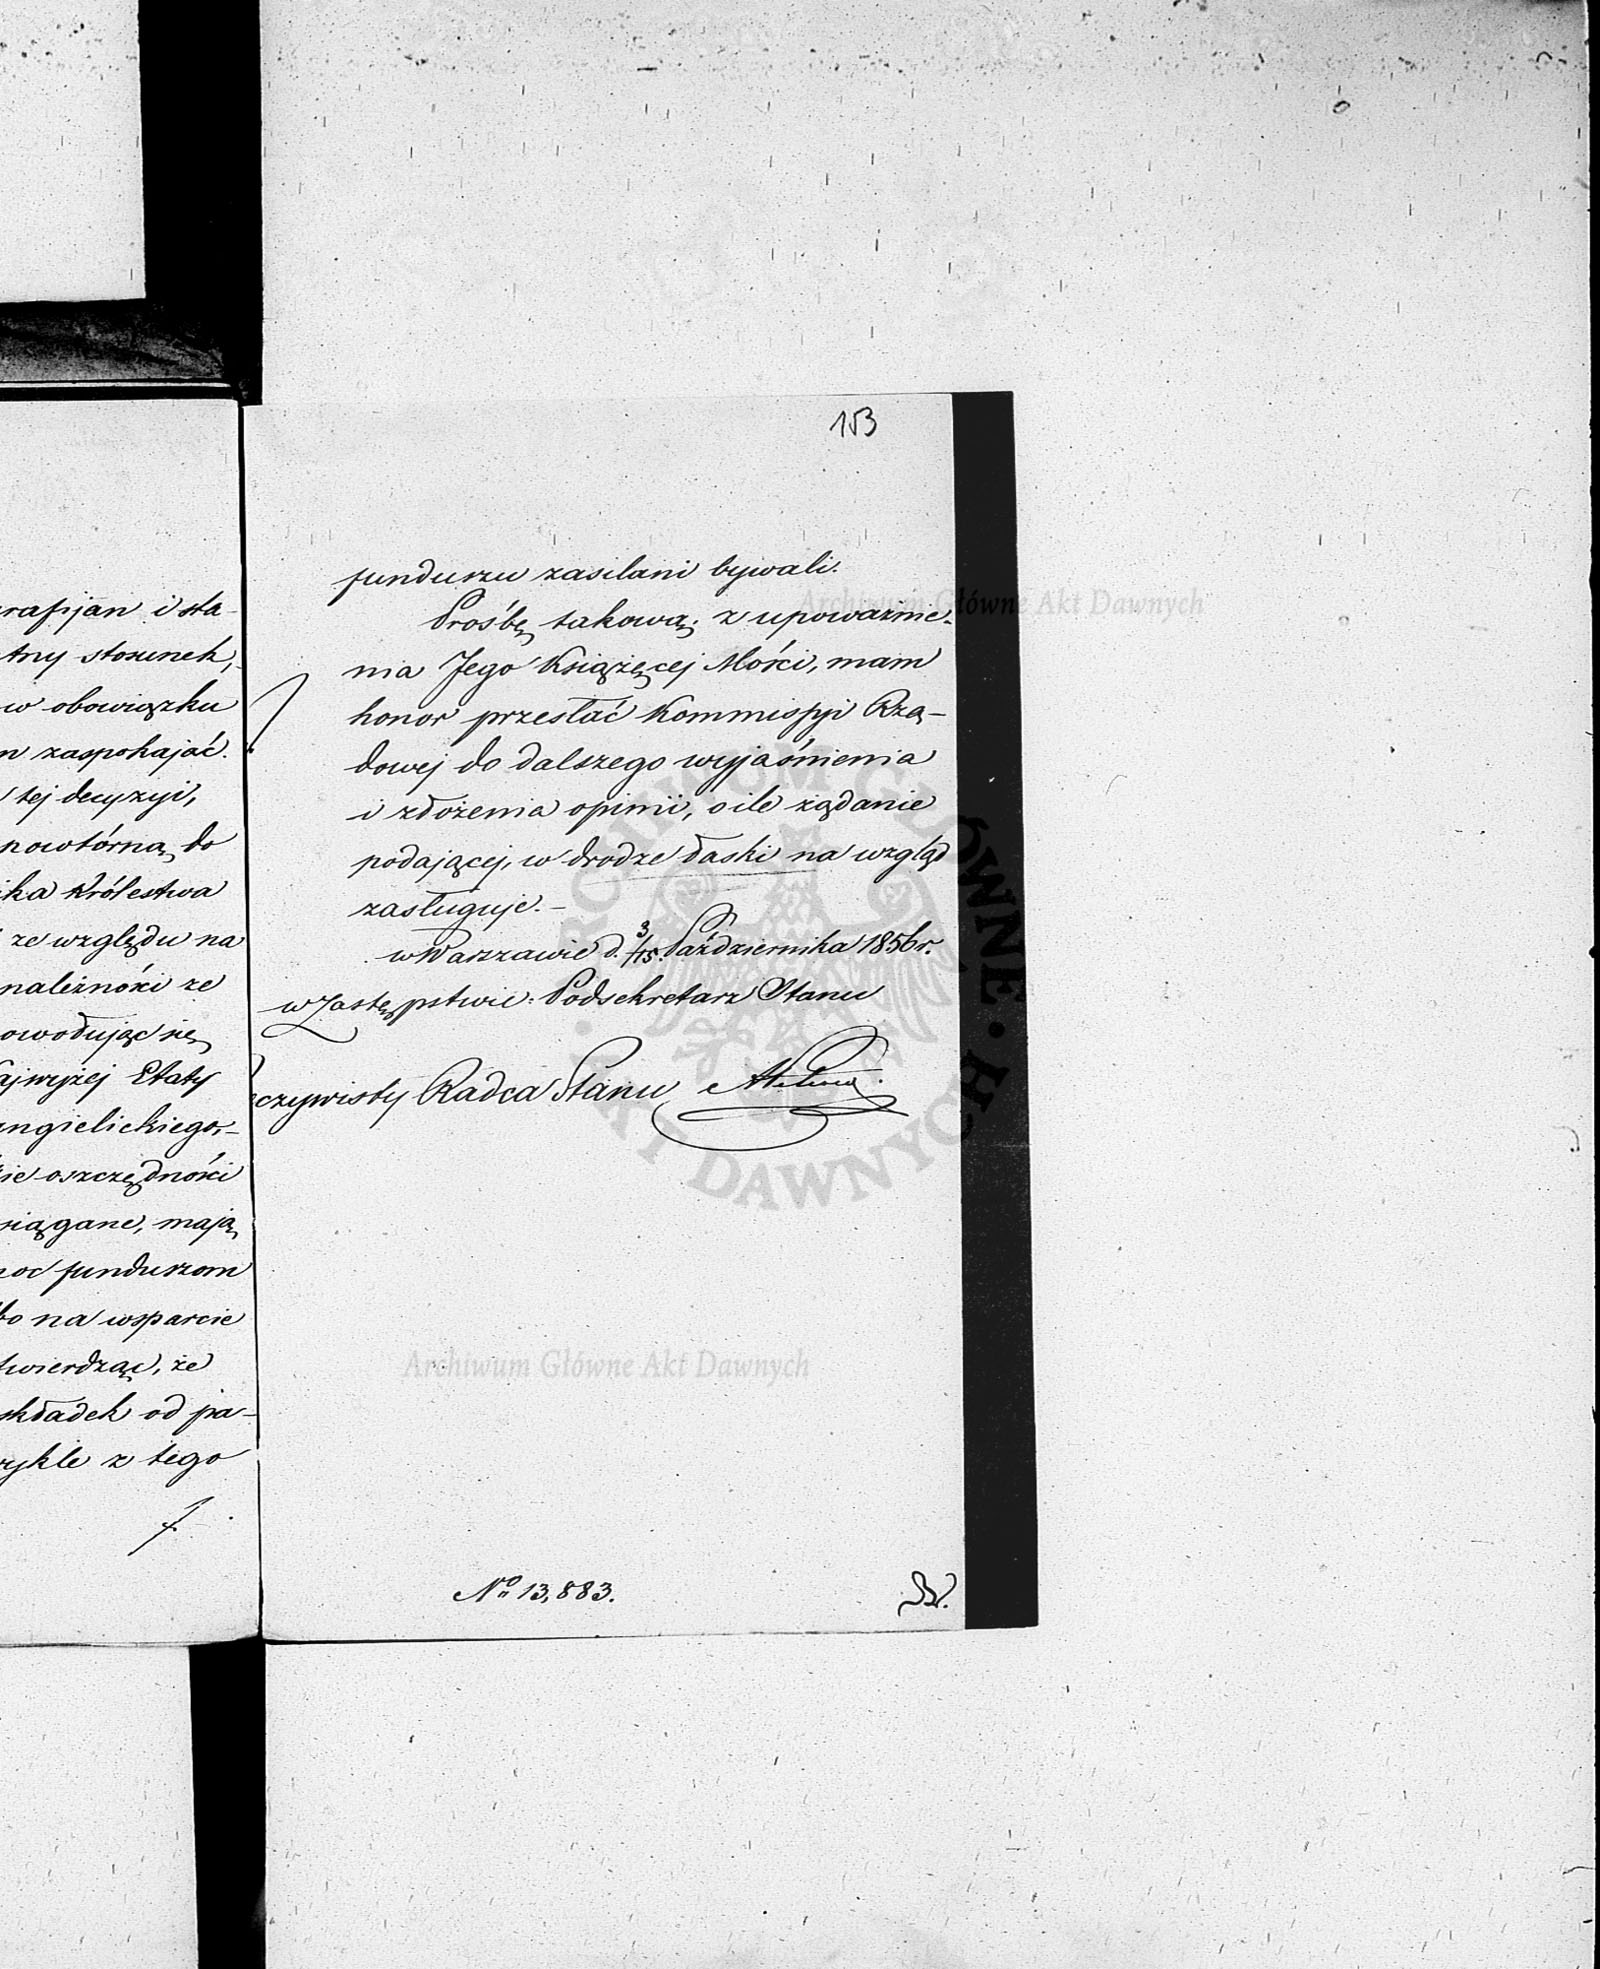 rafijan i sta-
tny stosunek,
w obowiązku
m zaspokajać.
tej decyzyi,
powtórną do
ika Królestwa
ze względu na
należności ze
owodując się
ajwyżej Etaty
Angielickiego,-
ie oszczędności
siągane, mają
moc funduszom
bo na wsparcie
twierdząc, że
składek od pa-
ykle z tego
f.
153
funduszu zasilani bywali.
Prośbę takową, z upoważnie-
nia Jego Książęcej Mości, mam
honor przesłać Kommissyi Rzą-
dowej do dalszego wyjaśnienia
i złożenia opinii, o ile żądanie
podającej, w drodze łaski na wzgląd
zasługuje.-
w Warszawie d. 3/15. Października 1856 r.
w Zastępstwie: Podsekretarz Stanu
czywisty Radca Stanu
No 13,883.
Archiwum Główne Akt Dawnych
ARCHIWUM GŁÓWNE AKT DAWNYCH
Archiwum Główne Akt Dawnych